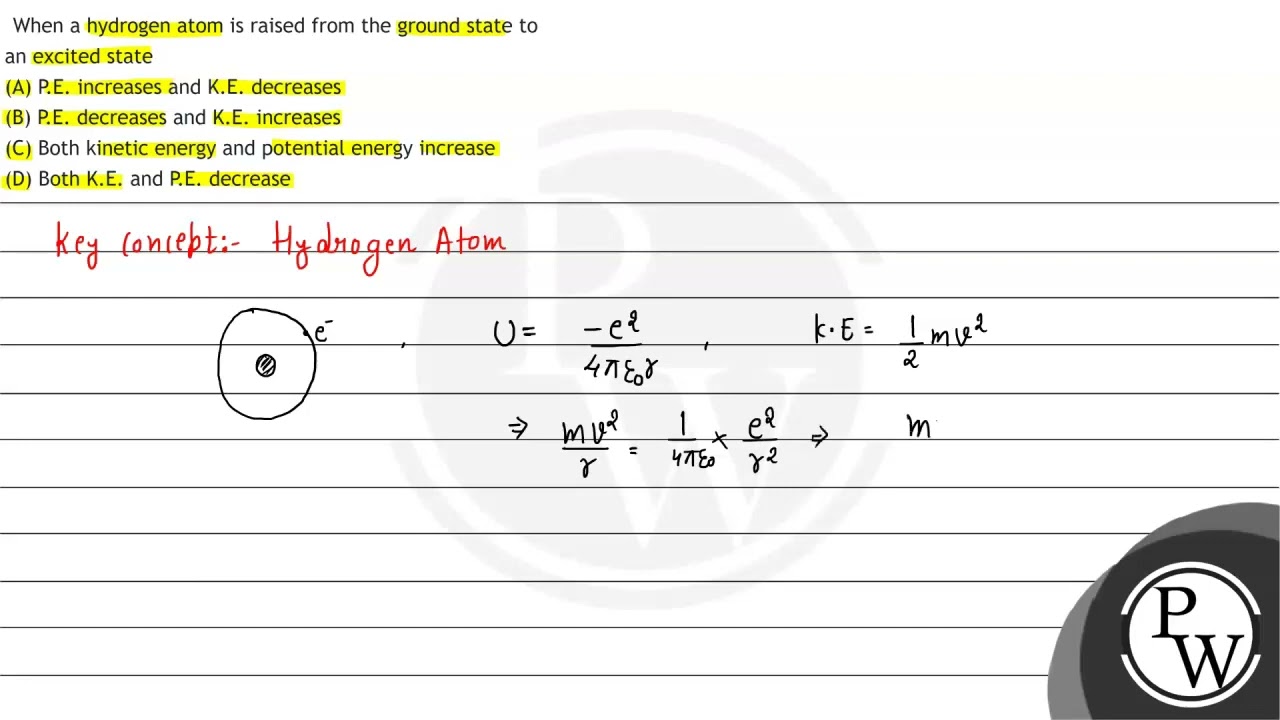 When a hydrogen atom is raised from the ground state to
an excited state
(A) P.E. increases and K.E. decreases
(B) P.E. decreases and K.E. increases
(C) Both kinetic energy and potential energy increase
(D) Both K.E. and P.E. decrease
Key Concept:- Hydrogen Atom
e⁻ , U = -e²/4πε₀r , K·E = 1/2 mv²
⇒ mv²/r = 1/4πε₀ × e²/r² ⇒ m
PW
PW